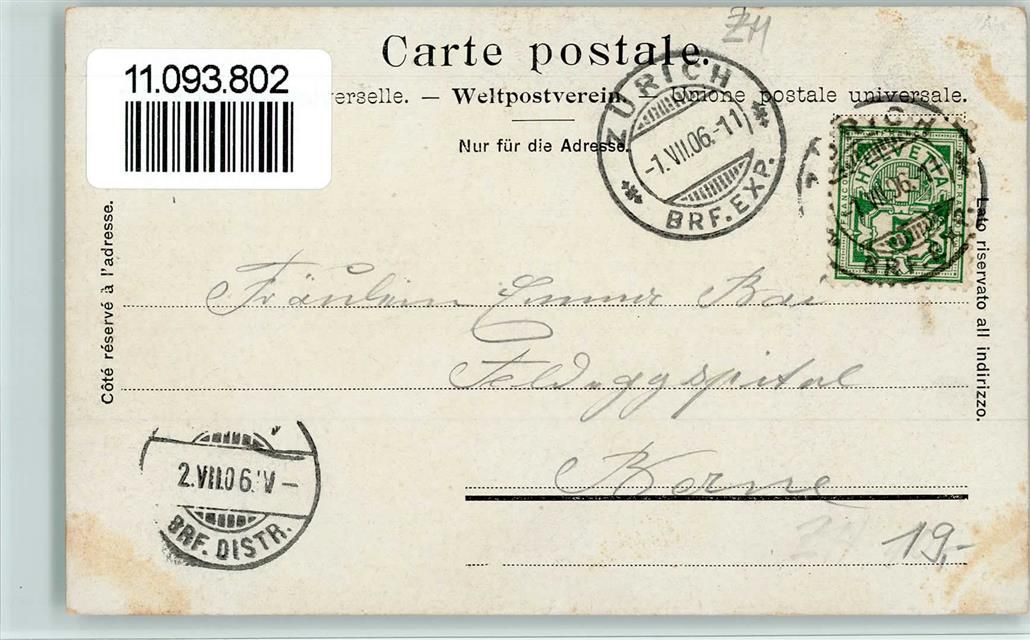 ZH
Carte postale.
11.093.802
erselle. — Weltpostverein. Unione postale universale.
Nur für die Adresse.
ZÜRICH
-1.VII.06.-11
BRF. EXP.
HELVETIA
FRANCO
BRF. EXP.
Côté réservé à l'adresse.
Lato riservato all indirizzo.
Fräulein Emma
Feldeggspital
Berne
2.VII.06. V –
BRF. DISTR.
19,-